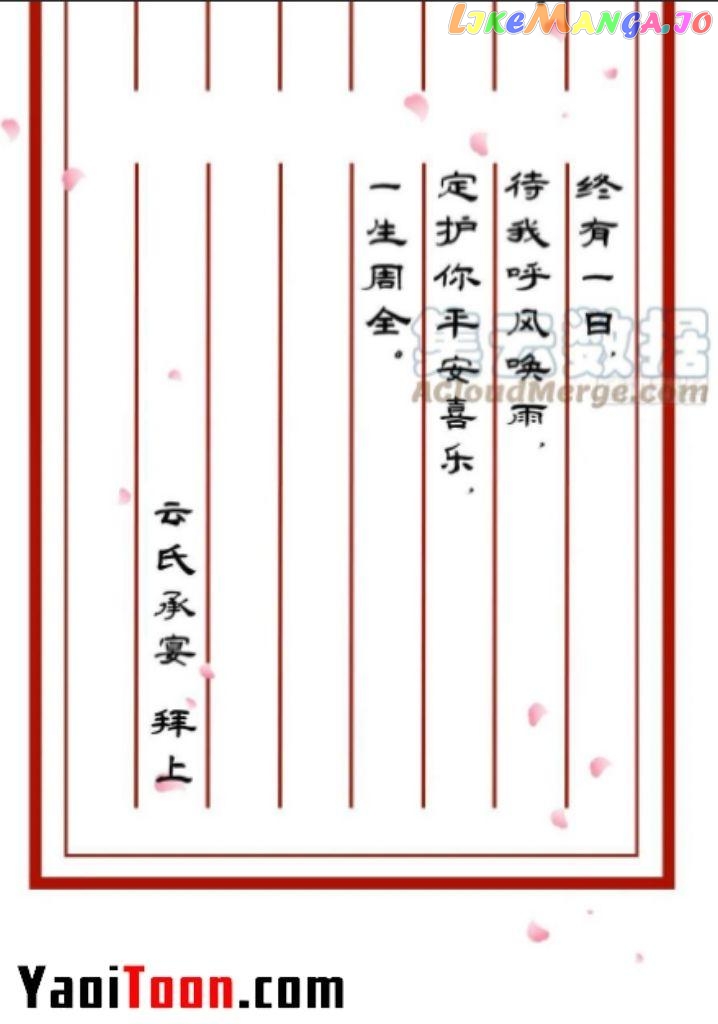 LIKEMANGA.IO
终有一日，
待我呼风唤雨，
定护你平安喜乐，
一生周全。
云氏承宴 拜上
集云数据
ACloudMerge.com
YaoiToon.com